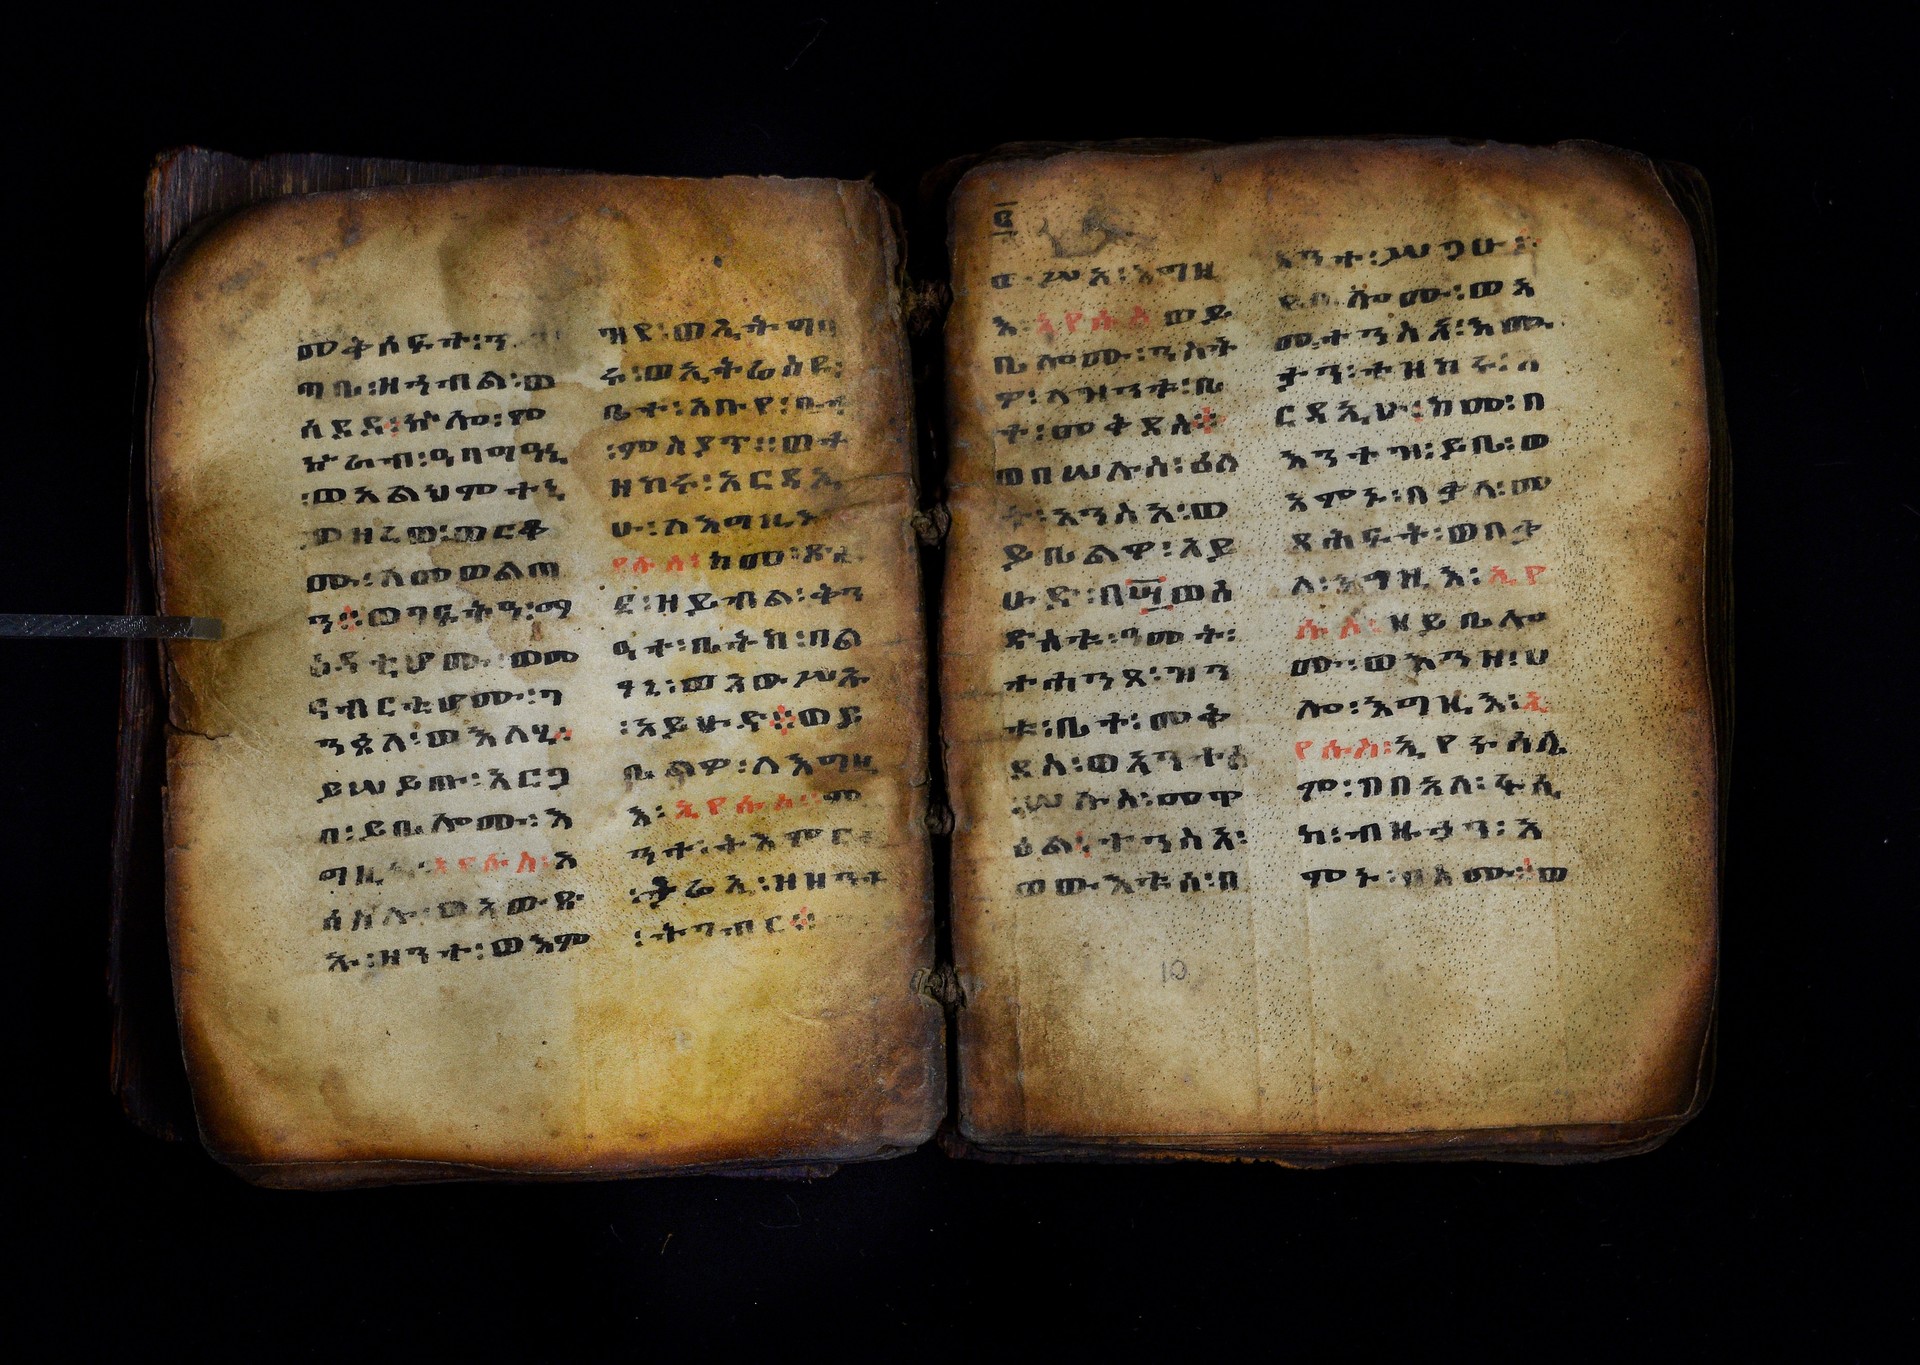 መቅሰፍተ፡
ጣቢ፡ዘኀብል፡ወ
ሰደደ፡ኵሎ፡ም
ኵራብ፡ዓባግዓኒ
፡ወአልህምተኒ
ወዘረወ፡ወርቆ
ሙ፡ለመወልጣ
ን።ወገፍትዓ፡ማ
ዕዳቲሆሙ፡ወመ
ናብርቲሆሙ፡ገ
ንጰለ፡ወእለሂ፡
ይሠይጡ፡እርግ
በ፡ይቤሎሙ፡እ
ግዚእ፡ኢየሱስ፡አ
ሰስሉ፡ወአውፅ
ኡ፡ዘንተ፡ወእም
ዝየ፡ወኢትግበ
ሩ፡ወኢትሬስዩ፡
ቤተ፡አቡየ፡ቤተ
፡ምስያጥ።ወተ
ዘከሩ፡አርዳኢ
ሁ፡ለእግዚእ
የሱስ፡ከመ፡ጽሑ
ፍ፡ዘይብል፡ቅን
ዓተ፡ቤትከ፡በል
ዓኒ፡ወአውሥኡ
፡አይሁድ።ወይ
ቤልዎ፡ለእግዚ
እ፡ኢየሱስ፡ም
ንተ፡ትእምርተ
፡ታሬኢ፡ዘዘንተ
፡ትገብር።
ወውሥአ፡እግዚ
እ፡ኢየሱስ፡ወይ
ቤሎሙ፡ንስት
ዎ፡ለዝንቱ፡ቤ
ተ፡መቅደስ።
ወበሠሉስ፡ዕለ
ት፡አነስአ፡ወ
ይቤልዎ፡አይ
ሁድ፡በ፵ወስ
ድስቱ፡ዓመት፡
ተሐንጸ፡ዝን
ቱ፡ቤተ፡መቅ
ደስ፡ወአንተሰ
፡በሠሉስ፡መዋ
ዕል፡ተነስአ፡
ወውእቱሰ፡በ
እንተ፡ሥጋሁ፡
ይቤሎሙ፡ወአ
መ፡ተንስአ፡እሙ
ታን፡ተዝከሩ፡አ
ርዳኢሁ፡ከመ፡በ
እንተዝ፡ይቤ፡ወ
አምኑ፡በቃለ፡መ
ጽሐፍት፡ወበቃ
ለ፡እግዚእ፡ኢየ
ሱስ፡ዘይቤሎ
ሙ፡ወእንዘ፡ሀ
ሎ፡እግዚእ፡ኢ
የሱስ፡ኢየሩሳሌ
ም፡በበዓለ፡ፋሲ
ካ፡ብዙኃን፡አ
ምኑ፡በስሙ፡ወ
10